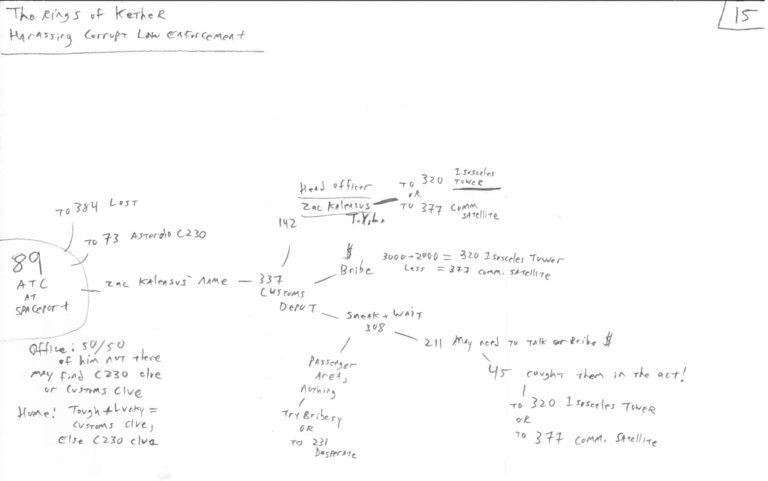 The Rings of Kether
Harassing Corrupt Law Enforcement
15
Head Officer
Zac Kaleasus
T.Y.L.
142
TO 320 Isosceles
Tower
OR
TO 377 Comm.
Satellite
TO 384 Lost
TO 73 Asteroid C230
89
ATC
AT
Spaceport
Zac Kaleasus' Name
337
Customs
Depot
$
Bribe
3000+2000 = 320 Isosceles Tower
Less = 377 Comm. Satellite
Sneak + Wait
308
211 May need to talk or Bribe $
45 caught them in the act!
TO 320 Isosceles Tower
OR
TO 377 Comm. Satellite
Passenger
Area,
Nothing
Try Bribery
OR
TO 231
Desperate
Office: 50/50
of him not there
may find C230 clue
or customs clue
Home: Tough + Lucky =
customs clue,
Else C230 clue